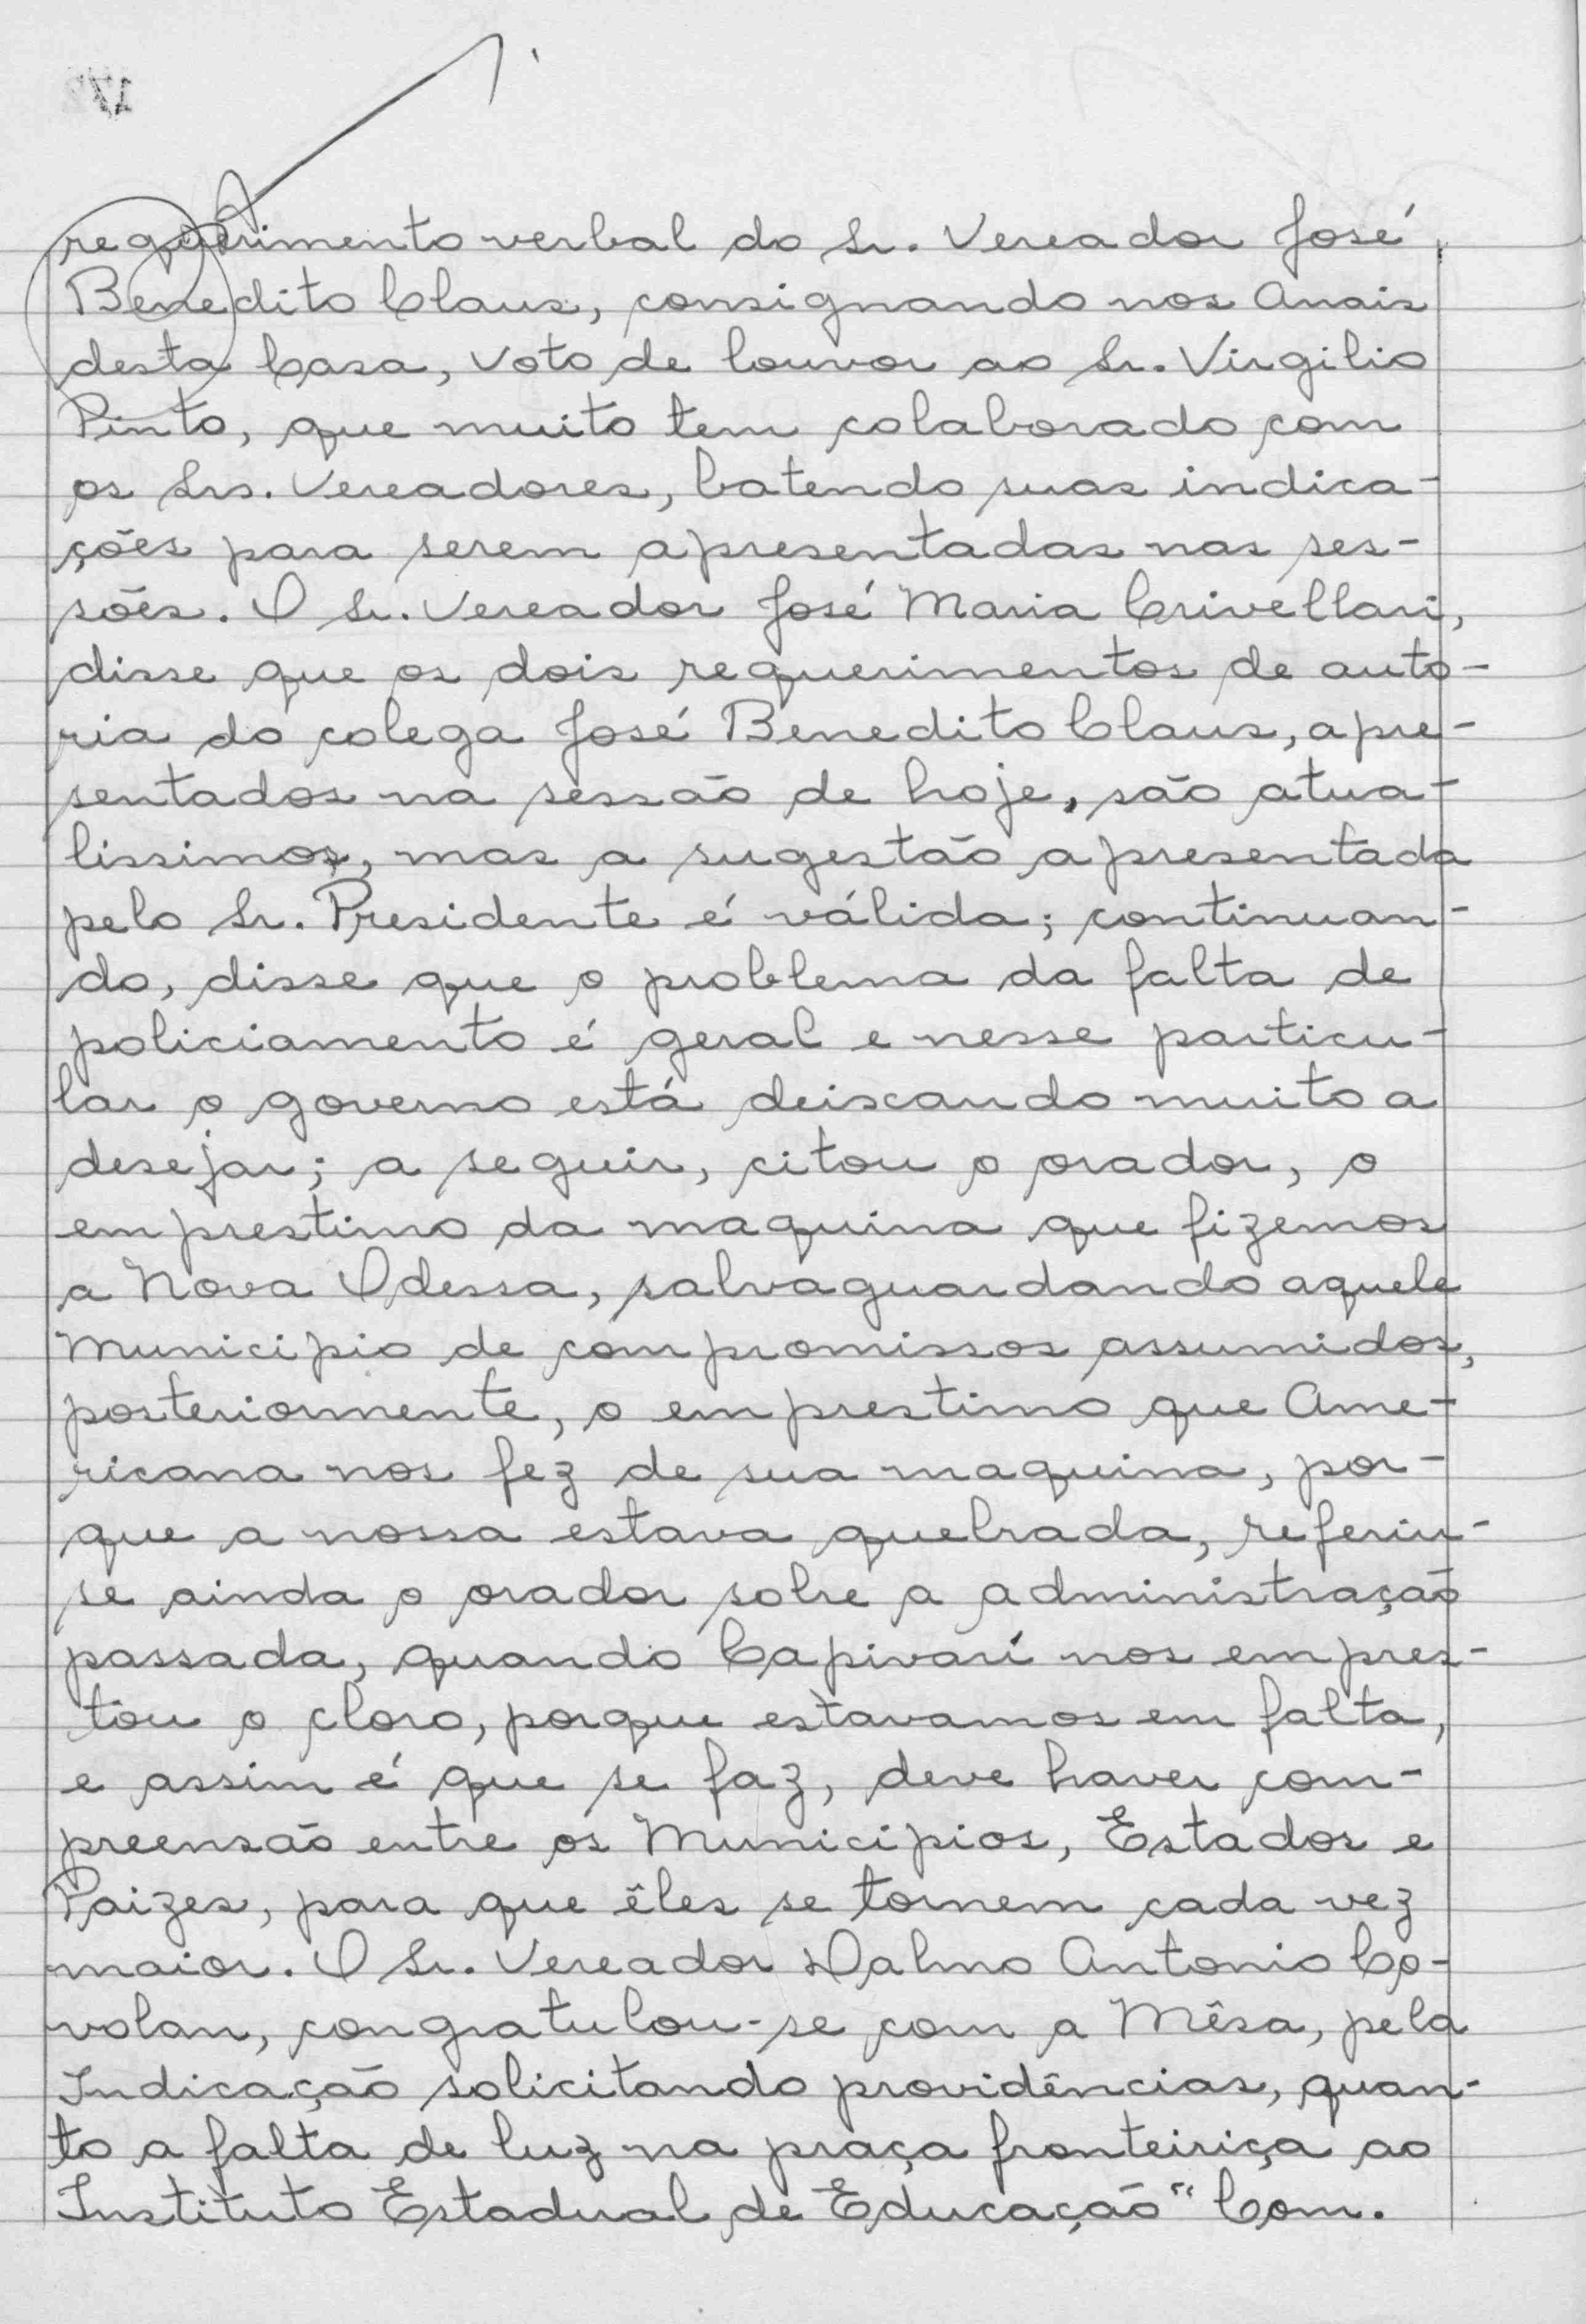 requerimento verbal do Sr. Vereador José
Benedito Claus, consignando nos Anais
desta Casa, voto de louvor ao Sr. Virgilio
Pinto, que muito tem colaborado com
os Srs. Vereadores, batendo suas indica-
ções para serem apresentadas nas ses-
sões. O Sr. Vereador José Maria Crivellari,
disse que os dois requerimentos de auto-
ria do colega José Benedito Claus, apre-
sentados na sessão de hoje, são atua-
lissimos, mas a sugestão apresentada
pelo Sr. Presidente é válida; continuan-
do, disse que o problema da falta de
policiamento é geral e nesse particu-
lar o governo está deixando muito a
desejar; a seguir, citou o orador, o
emprestimo da maquina que fizemos
a Nova Odessa, salvaguardando aquele
Municipio de compromissos assumidos,
posteriormente, o emprestimo que Ame-
ricana nos fez de sua maquina, por-
que a nossa estava quebrada, referiu-
se ainda o orador sobre a administração
passada, quando Capivarí nos empres-
tou o cloro, porque estavamos em falta,
e assim é que se faz, deve haver com-
preensão entre os Municipios, Estados e
Paizes, para que êles se tornem cada vez
maior. O Sr. Vereador Dalmo Antonio Co-
volan, congratulou-se com a Mêsa, pela
Indicação solicitando providências, quan-
to a falta de luz na praça fronteiriça ao
Instituto Estadual de Educação "Com.